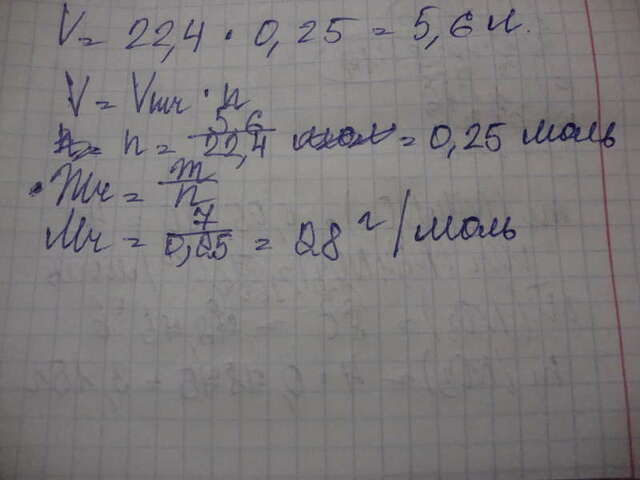 V = 22,4 · 0,25 = 5,6 л.
V = Vm · n
n = 5,6 / 22,4 = 0,25 моль
M = m / n
M = 7 / 0,25 = 28 г/моль